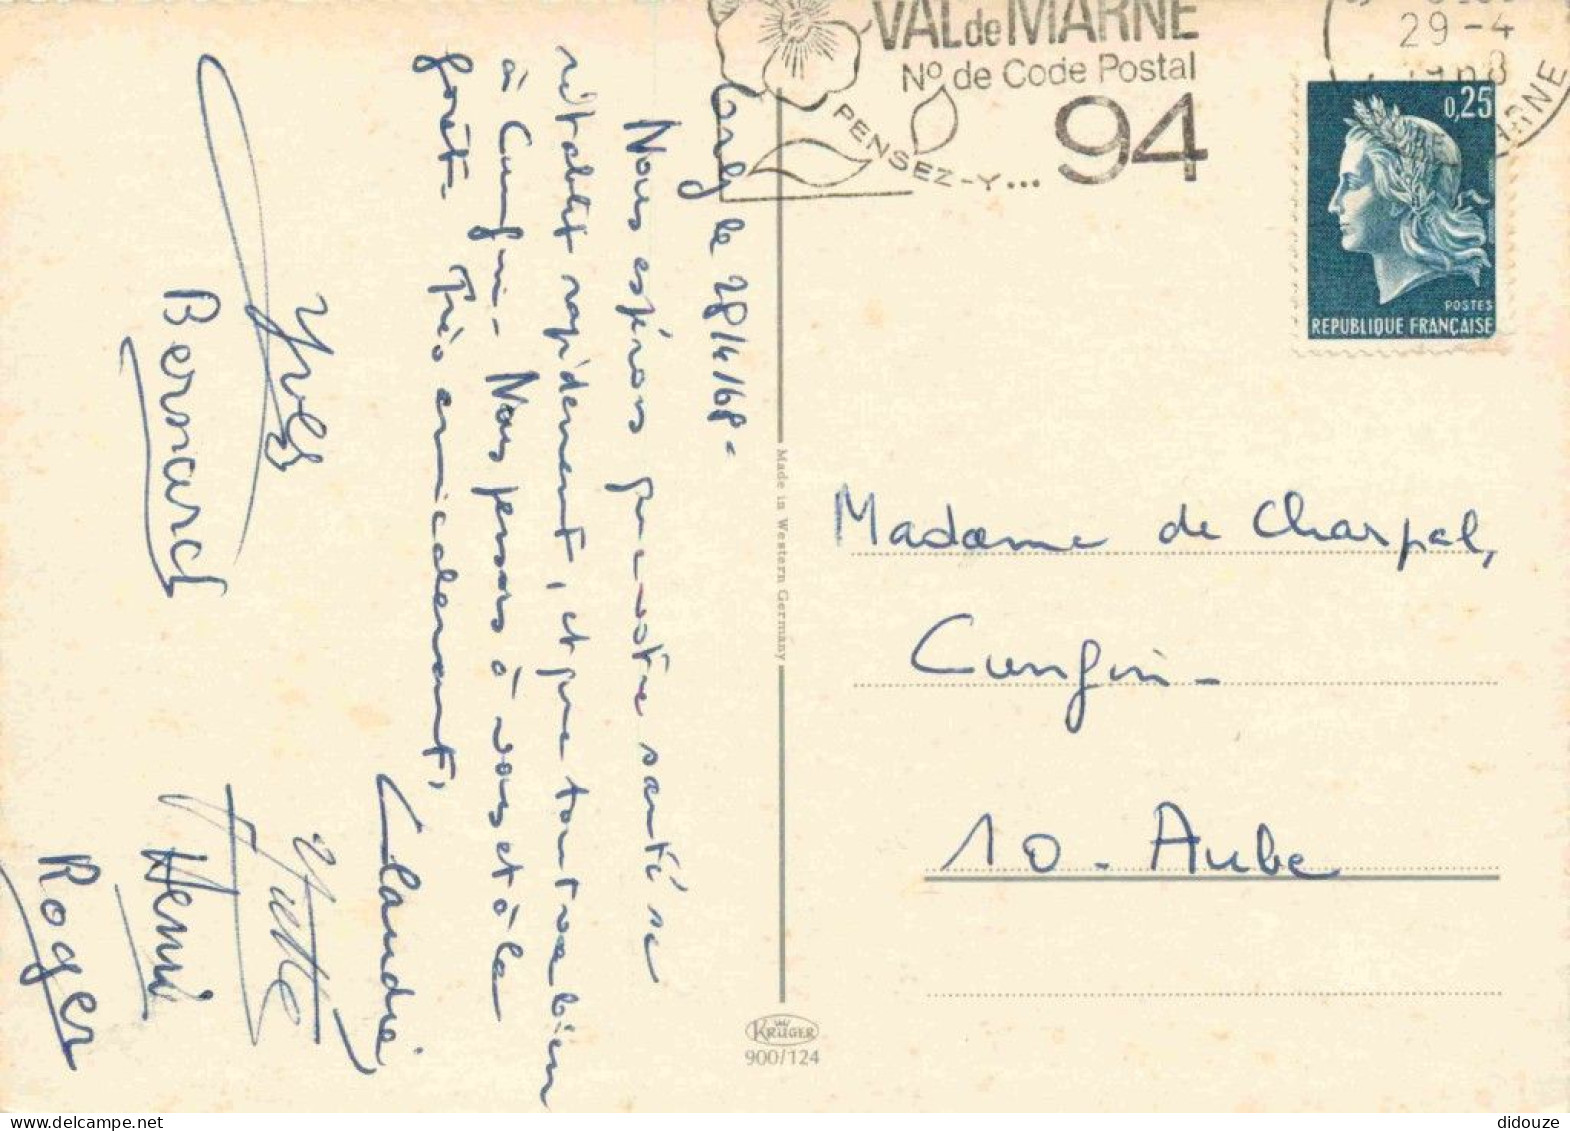 VAL de MARNE
N° de Code Postal
94
PENSEZ-Y...
29-4
1968
MARNE
0,25
POSTES
REPUBLIQUE FRANÇAISE
Orly le 28/4/68-
Nous espérons que votre santé se
rétablit rapidement, et que tout va bien
à Cunfin- Nous pensons à vous et à la
forêt. Très amicalement,
Claudie,
Yves
Bernard
Yvette
Henri
Roger
Made in Western Germany
KRÜGER
900/124
Madame de Charpal,
Cunfin-
10 - Aube
didouze